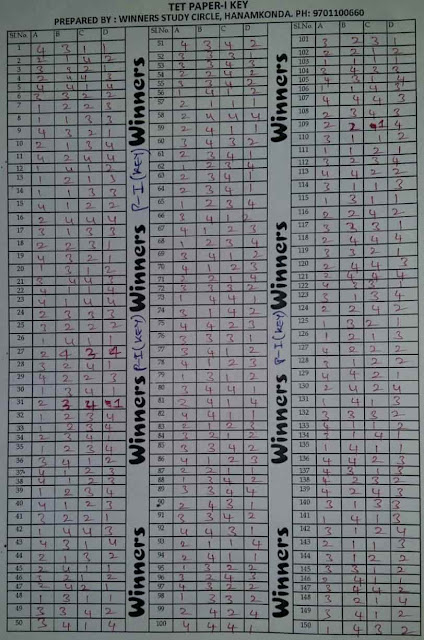 TET PAPER-I KEY
PREPARED BY : WINNERS STUDY CIRCLE, HANAMKONDA. PH: 9701100660
Sl.No A B C D
1 4 3 1 1
2
3 3 3 2 1
4 2 4 4 3
5 4 4 1 4
6 3 3 2 2
7 1 2 2 3
8 1 1 3 3
9 4 3 2 1
10 2 1 3 4
11 4 2 4 4
12 1 4 1 2
13 1 2 1 3
14 1 1 3 3
15 4 1 2 2
16 2 4 4 4
17 3 1 3 3
18 2 2 3 1
19 4 3 2 1
20 1 3 1 2
21 3 4 4 3
22
23 4 1 4 4
24 2 3 3 3
25 3 2 2 2
26
27 2 4 3 4
28 3 2 4 1
29 4 2 2 3
30 1 3 4 1
31 2 3 4 1
32 1 2 3 4
33 1 2 3 4
34 2 3 4 1
35 1 2 3 4
36 3 4 1 2
37 4 1 2 3
38 4 1 2 3
39 1 2 3 4
40 4 1 2 3
41 3 2 2 1
42 1 4 4 3
43 4 3 1 4
44 2 1 3 2
45 2 4 1 1
46 3 2 1 2
47 2 4 2 1
48 1 3 1 1
49 3 3 4 2
50 3 4 1 4
Winners
P-I (KEY)
Winners
P-I (KEY)
Winners
Winners
Sl.No A B C D
51 4 3 4 2
52 3 1 3 1
53 2 3 4 4
54 2 2 4 2
55 3 3 4 2
56 1 4 1 2
57 2 1 1 1
58 2 4 4 4
59 2 4 1 1
60 3 4 3 2
61 2 3 4 1
62 1 2 3 4
63 2 3 4 1
64 2 3 4 1
65 1 2 3 4
66 3 4 1 2
67 4 1 2 3
68 1 2 3 4
69 3 4 1 2
70 4 1 2 3
71 2 2 1 4
72 3 3 3 2
73 1 4 4 1
74 3 3 4 2
75 4 4 2 3
76 3 1 3 1
77 3 4 1 2
78 4 1 2 3
79 1 3 1 2
80 3 4 4 1
81 2 4 1 4
82 4 4 1 1
83 2 1 2 3
84 3 2 1 2
85 1 3 4 3
86 4 1 2 3
87 2 2 1
88 1 3 4 2
89 3 3 4 4
90 2 4 3 1
91 3 3 4 2
92 4 4 3 1
93 2 1 1 4
94 2 4 1 1
95 1 3 2 2
96 3 2 4 3
97 4 3 2 2
98 1 3 3 2
99 2 4 2 4
100 4 4 4 1
Winners
Winners
P-I (KEY)
Winners
Sl.No A B C D
101 3 2 3 1
102 2 2 1 2
103
104 3 4 3 3
105 4 3 1 4
106 1 1 4 3
107 4 4 4 3
108 2 3 4 3
109 2 2 1 4
110 3 1 1 2
111 1 1 2 1
112 3 2 3 4
113 4 4 2 2
114 3 1 1 3
115 1 3 1 1
116 2 2 4 2
117 3 3 3 1
118 2 4 4 4
119 3 3 2 1
120 2 4 4 3
121 2 4 4 4
122 4 3 3 3
123 3 1 3 4
124 2 2 4 2
125 1 3 2 1
126 1 2 1 3
127 4 2 2 2
128 3 1 2 2
129 4 4 2 1
130 2 4 2 4
131 1 4 1 3
132 3 3 3 2
133 4 1 1 2
134
135 1 4 1 1
136 4 4 2 3
137 4 3 1 3
138 4 2 3 2
139 4 2 4 3
140 3 1 3 3
141 1 4 1 3
142 3 1 2 4
143 2 1 1 3
144 3 1 2 2
145 1 3 1 2
146 2 4 1 1
147 3 4 4 2
148 3 2 1 4
149 3 4 1 2
150 1 4 3 2